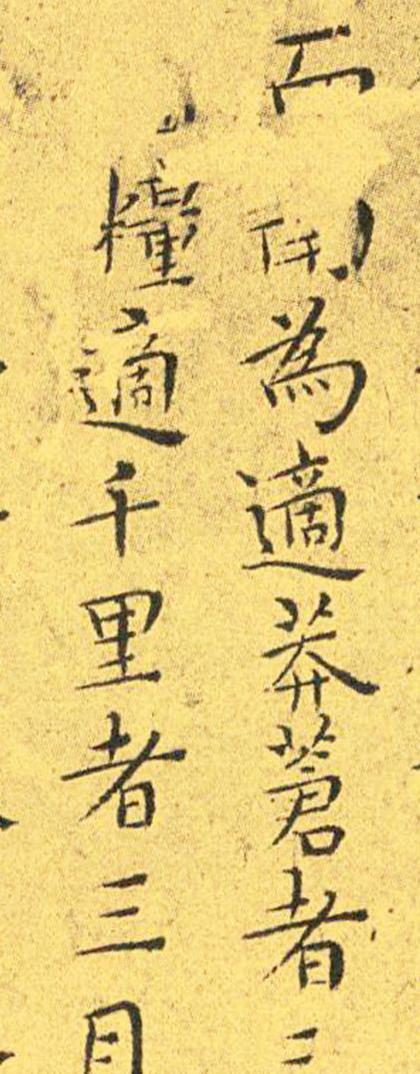 而為適莽蒼者
糧適千里者三月